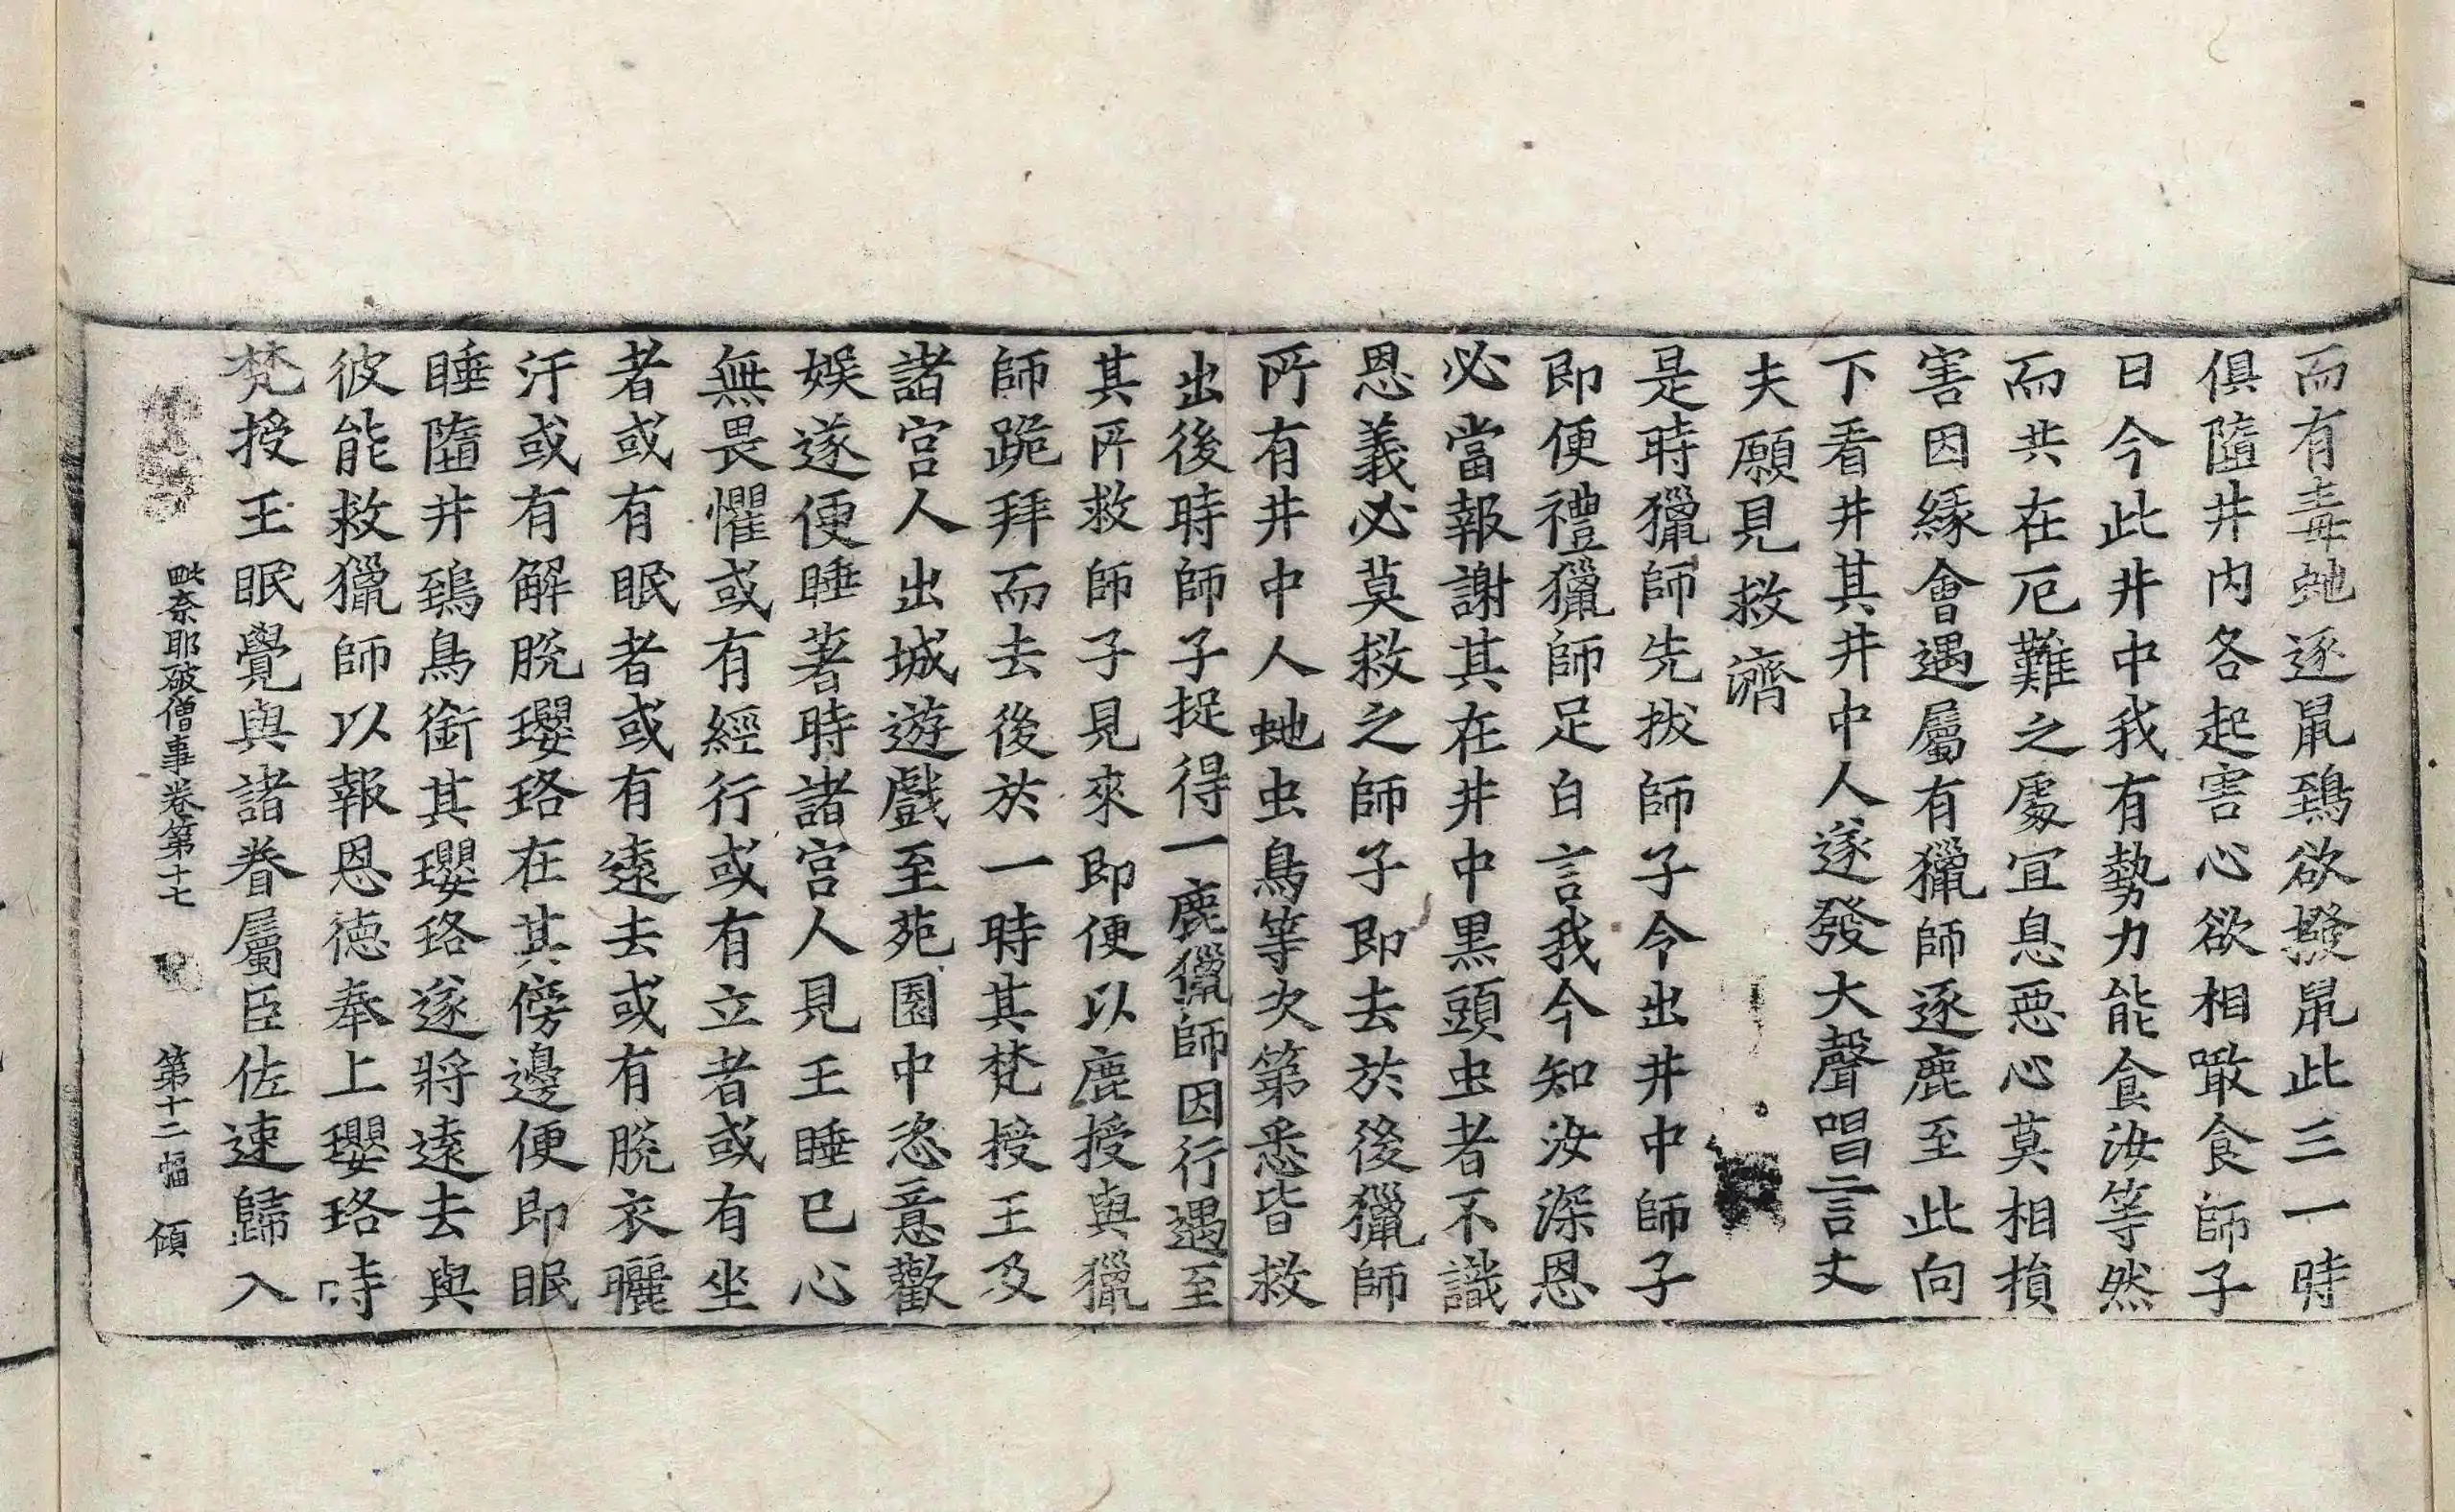 而有毒虵逐鼠鵄欲撥鼠此三一時
俱墮井内各起害心欲相噉食師子
日今此井中我有勢力能食汝等然
而共在厄難之處宜息惡心莫相損
害因緣會遇屬有獵師逐鹿至此向
下看井其井中人遂發大聲唱言丈
夫願見救濟
是時獵師先拔師子令出井中師子
即便禮獵師足白言我今知汝深恩
必當報謝其在井中黒頭虫者不識
恩義必莫救之師子即去於後獵師
所有井中人虵虫鳥等次第悉皆救
出後時師子捉得一鹿獵師因行遇至
其所救師子見來即便以鹿授與獵
師跪拜而去後於一時其梵授王及
諸宫人出城遊戲至苑園中恣意歡
娛遂便睡著時諸宫人見王睡已心
無畏懼或有經行或有立者或有坐
者或有眠者或有遠去或有脫衣曬
汗或有解脫瓔珞在其傍邊便即眠
睡墮井鵄鳥銜其瓔珞遂將遠去與
彼能救獵師以報恩德奉上瓔珞時
梵授王眠覺與諸眷屬臣佐速歸入
毗奈耶破僧事卷第十七 第十二幅 傾